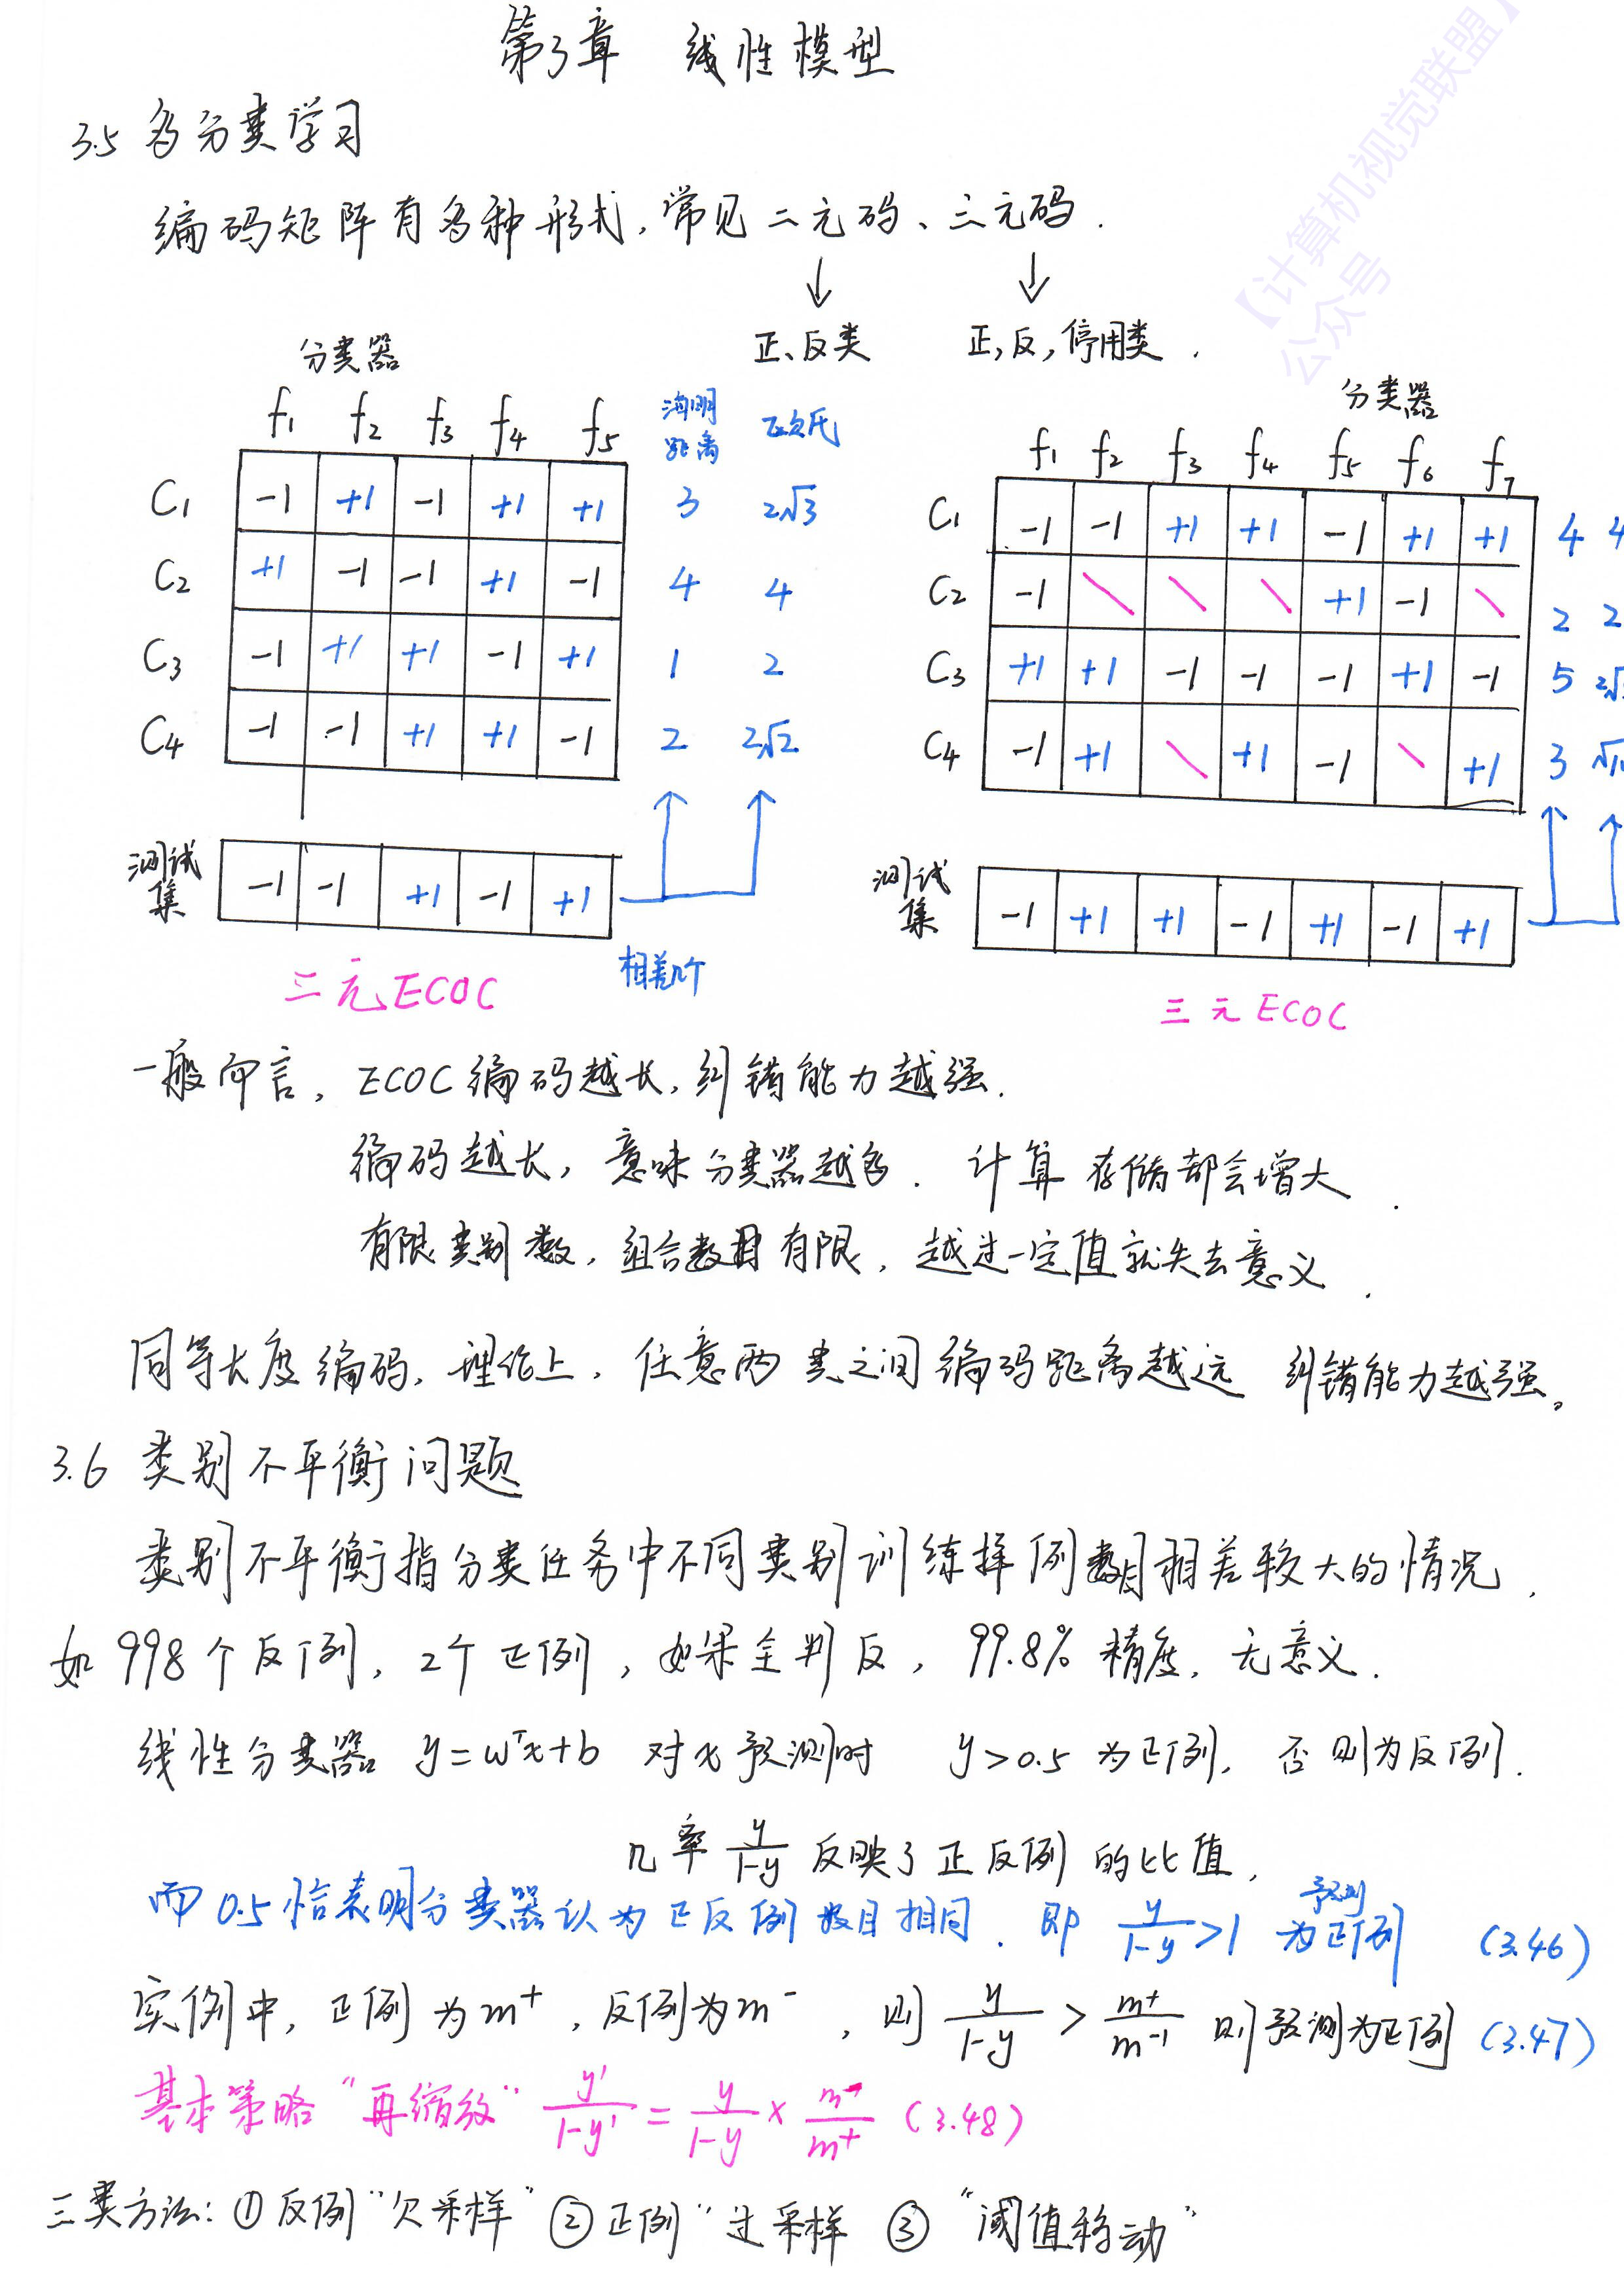 第3章 线性模型
【计算机视觉联盟】
公众号
3.5 多分类学习
编码矩阵有多种形式,常见二元码、三元码.
↓ ↓
正、反类 正,反,停用类.
分类器
f1 f2 f3 f4 f5 海明距离 欧氏
C1 -1 +1 -1 +1 +1 3 2√3
C2 +1 -1 -1 +1 -1 4 4
C3 -1 +1 +1 -1 +1 1 2
C4 -1 -1 +1 +1 -1 2 2√2
测试集 -1 -1 +1 -1 +1
相差几个
三元ECOC
分类器
f1 f2 f3 f4 f5 f6 f7
C1 -1 -1 +1 +1 -1 +1 +1 4 4
C2 -1 \ \ \ +1 -1 \ 2 2
C3 +1 +1 -1 -1 -1 +1 -1 5 2√
C4 -1 +1 \ +1 -1 \ +1 3 √1
测试集 -1 +1 +1 -1 +1 -1 +1
三元ECOC
一般而言, ECOC编码越长,纠错能力越强.
编码越长,意味分类器越多. 计算存储都会增大.
有限类别数,组合数目有限,越过一定值就失去意义.
同等长度编码,理论上,任意两类之间编码距离越远 纠错能力越强。
3.6 类别不平衡问题
类别不平衡指分类任务中不同类别训练样例数目相差较大的情况.
如998个反例,2个正例,如果全判反,99.8%精度,无意义.
线性分类器 y=wᵀx+b 对x预测时 y>0.5为正例,否则为反例.
几率 y/(1-y) 反映了正反例的比值,
而0.5恰表明分类器认为正反例数目相同. 即 y/(1-y) >1 预测为正例 (3.46)
实例中,正例为m⁺,反例为m⁻,则 y/(1-y) > m⁺/m⁻¹ 则预测为正例 (3.47)
基本策略“再缩放” y'/(1-y') = y/(1-y) × m⁻/m⁺ (3.48)
三类方法: ①反例“欠采样” ②正例“过采样 ③“阈值移动”